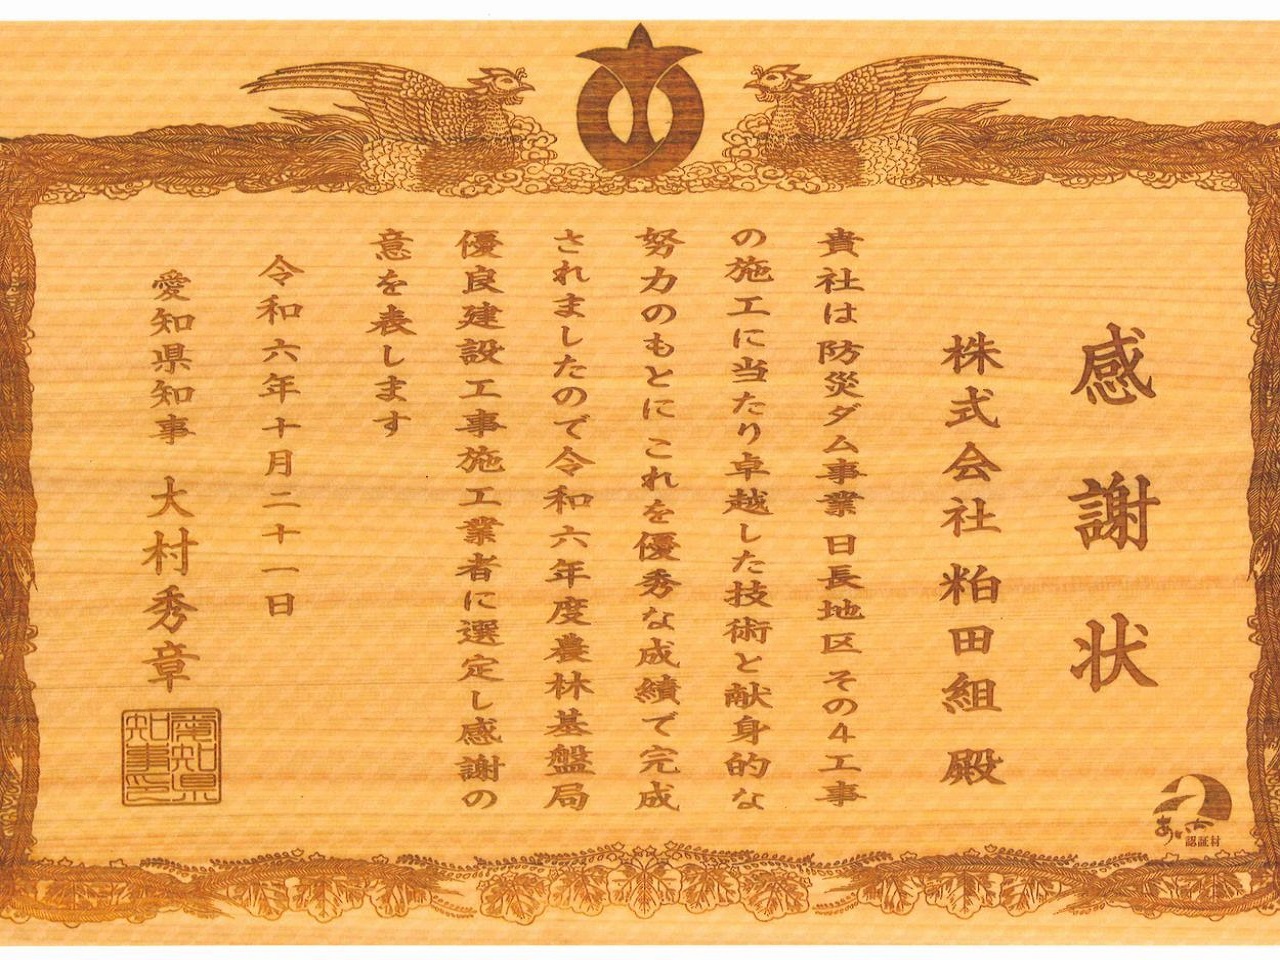 感謝状
株式会社粕田組 殿
貴社は防災ダム事業 日長地区 その4工事
の施工に当たり卓越した技術と献身的な
努力のもとに これを優秀な成績で完成
されましたので令和六年度農林基盤局
優良建設工事施工業者に選定し感謝の
意を表します
令和六年十月二十一日
愛知県知事 大村秀章
愛知県
知事印
あいち
認証材